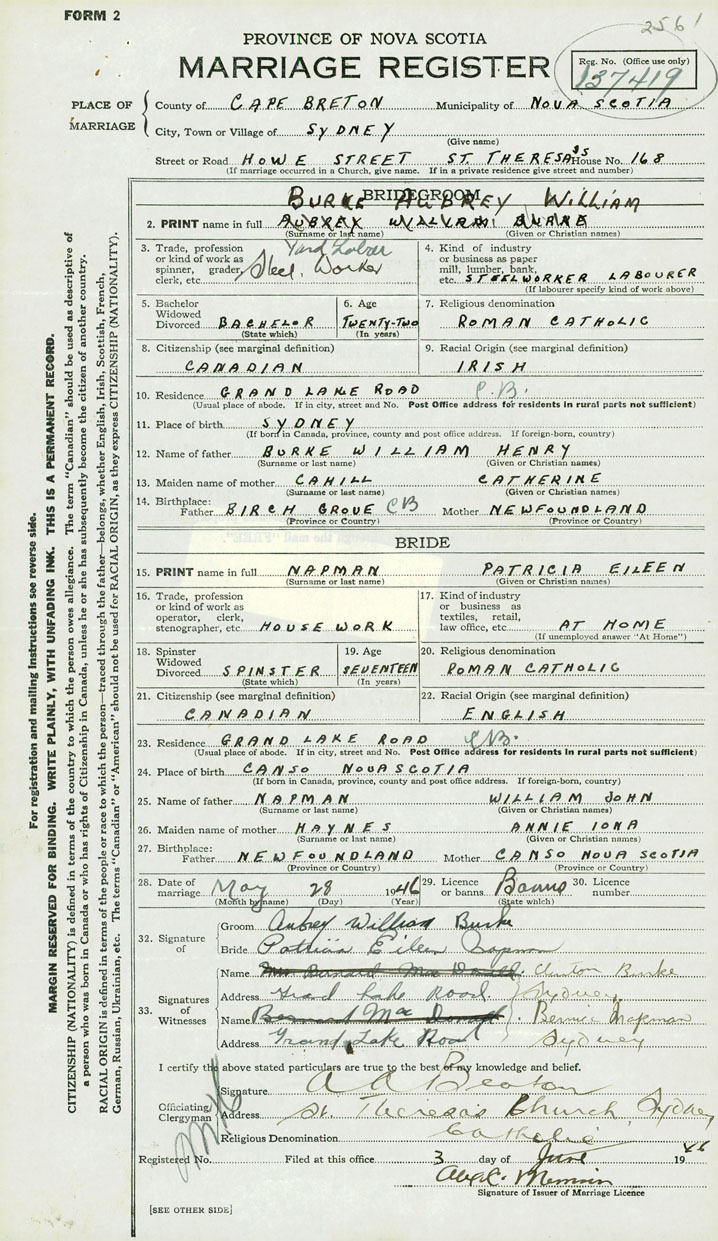 FORM 2
2561
PROVINCE OF NOVA SCOTIA
MARRIAGE REGISTER
Reg. No. (Office use only)
137419
PLACE OF MARRIAGE
County of CAPE BRETON Municipality of NOVA SCOTIA
City, Town or Village of SYDNEY
(Give name)
Street or Road HOWE STREET ST. THERESA'S House No. 168
(If marriage occurred in a Church, give name. If in a private residence give street and number)
BRIDEGROOM
BURKE AUBREY WILLIAM
2. PRINT name in full AUBREY WILLIAM BURKE
(Surname or last name) (Given or Christian names)
3. Trade, profession or kind of work as spinner, grader, clerk, etc. Yard Labor Steel Worker
4. Kind of industry or business as paper mill, lumber, bank, etc. STEELWORKER LABOURER
(If labourer specify kind of work above)
5. Bachelor Widowed Divorced BACHELOR
(State which)
6. Age TWENTY-TWO
(In years)
7. Religious denomination
ROMAN CATHOLIC
8. Citizenship (see marginal definition)
CANADIAN
9. Racial Origin (see marginal definition)
IRISH
10. Residence GRAND LAKE ROAD C.B.
(Usual place of abode. If in city, street and No. Post Office address for residents in rural parts not sufficient)
11. Place of birth SYDNEY
(If born in Canada, province, county and post office address. If foreign-born, country)
12. Name of father BURKE WILLIAM HENRY
(Surname or last name) (Given or Christian names)
13. Maiden name of mother CAHILL CATHERINE
(Surname or last name) (Given or Christian names)
14. Birthplace: Father BIRCH GROVE CB Mother NEWFOUNDLAND
(Province or Country) (Province or Country)
BRIDE
15. PRINT name in full NAPMAN PATRICIA EILEEN
(Surname or last name) (Given or Christian names)
16. Trade, profession or kind of work as operator, clerk, stenographer, etc. HOUSE WORK
17. Kind of industry or business as textiles, retail, law office, etc. AT HOME
(If unemployed answer "At Home")
18. Spinster Widowed Divorced SPINSTER
(State which)
19. Age SEVENTEEN
(In years)
20. Religious denomination
ROMAN CATHOLIC
21. Citizenship (see marginal definition)
CANADIAN
22. Racial Origin (see marginal definition)
ENGLISH
23. Residence GRAND LAKE ROAD C.B.
(Usual place of abode. If in city, street and No. Post Office address for residents in rural parts not sufficient)
24. Place of birth CANSO NOVA SCOTIA
(If born in Canada, province, county and post office address. If foreign-born, country)
25. Name of father NAPMAN WILLIAM JOHN
(Surname or last name) (Given or Christian names)
26. Maiden name of mother HAYNES ANNIE IONA
(Surname or last name) (Given or Christian names)
27. Birthplace: Father NEWFOUNDLAND Mother CANSO NOVA SCOTIA
(Province or Country) (Province or Country)
28. Date of marriage May 28 1946
(Month by name) (Day) (Year)
29. Licence or banns Banns
(State which)
30. Licence number
32. Signature of
Groom Aubrey William Burke
Bride Patricia Eileen Napman
33. Signatures of Witnesses
Name Mrs Bernard Mac Donald Clinton Burke
Address Grand Lake Road Sydney
Name Bernard Mac Donald Bernice Napman
Address Grand Lake Road Sydney
I certify the above stated particulars are true to the best of my knowledge and belief.
Officiating Clergyman
Signature A A Beaton
Address St. Theresa's Church, Sydney
Religious Denomination Catholic
Registered No. Filed at this office 3 day of June 1946
Signature of Issuer of Marriage Licence
[SEE OTHER SIDE]
For registration and mailing instructions see reverse side.
MARGIN RESERVED FOR BINDING. WRITE PLAINLY, WITH UNFADING INK. THIS IS A PERMANENT RECORD.
CITIZENSHIP (NATIONALITY) is defined in terms of the country to which the person owes allegiance. The term "Canadian" should be used as descriptive of
a person who was born in Canada or who has rights of Citizenship in Canada, unless he or she has subsequently become the citizen of another country.
RACIAL ORIGIN is defined in terms of the people or race to which the person—traced through the father—belongs, whether English, Irish, Scottish, French,
German, Russian, Ukrainian, etc. The terms "Canadian" or "American" should not be used for RACIAL ORIGIN, as they express CITIZENSHIP (NATIONALITY).